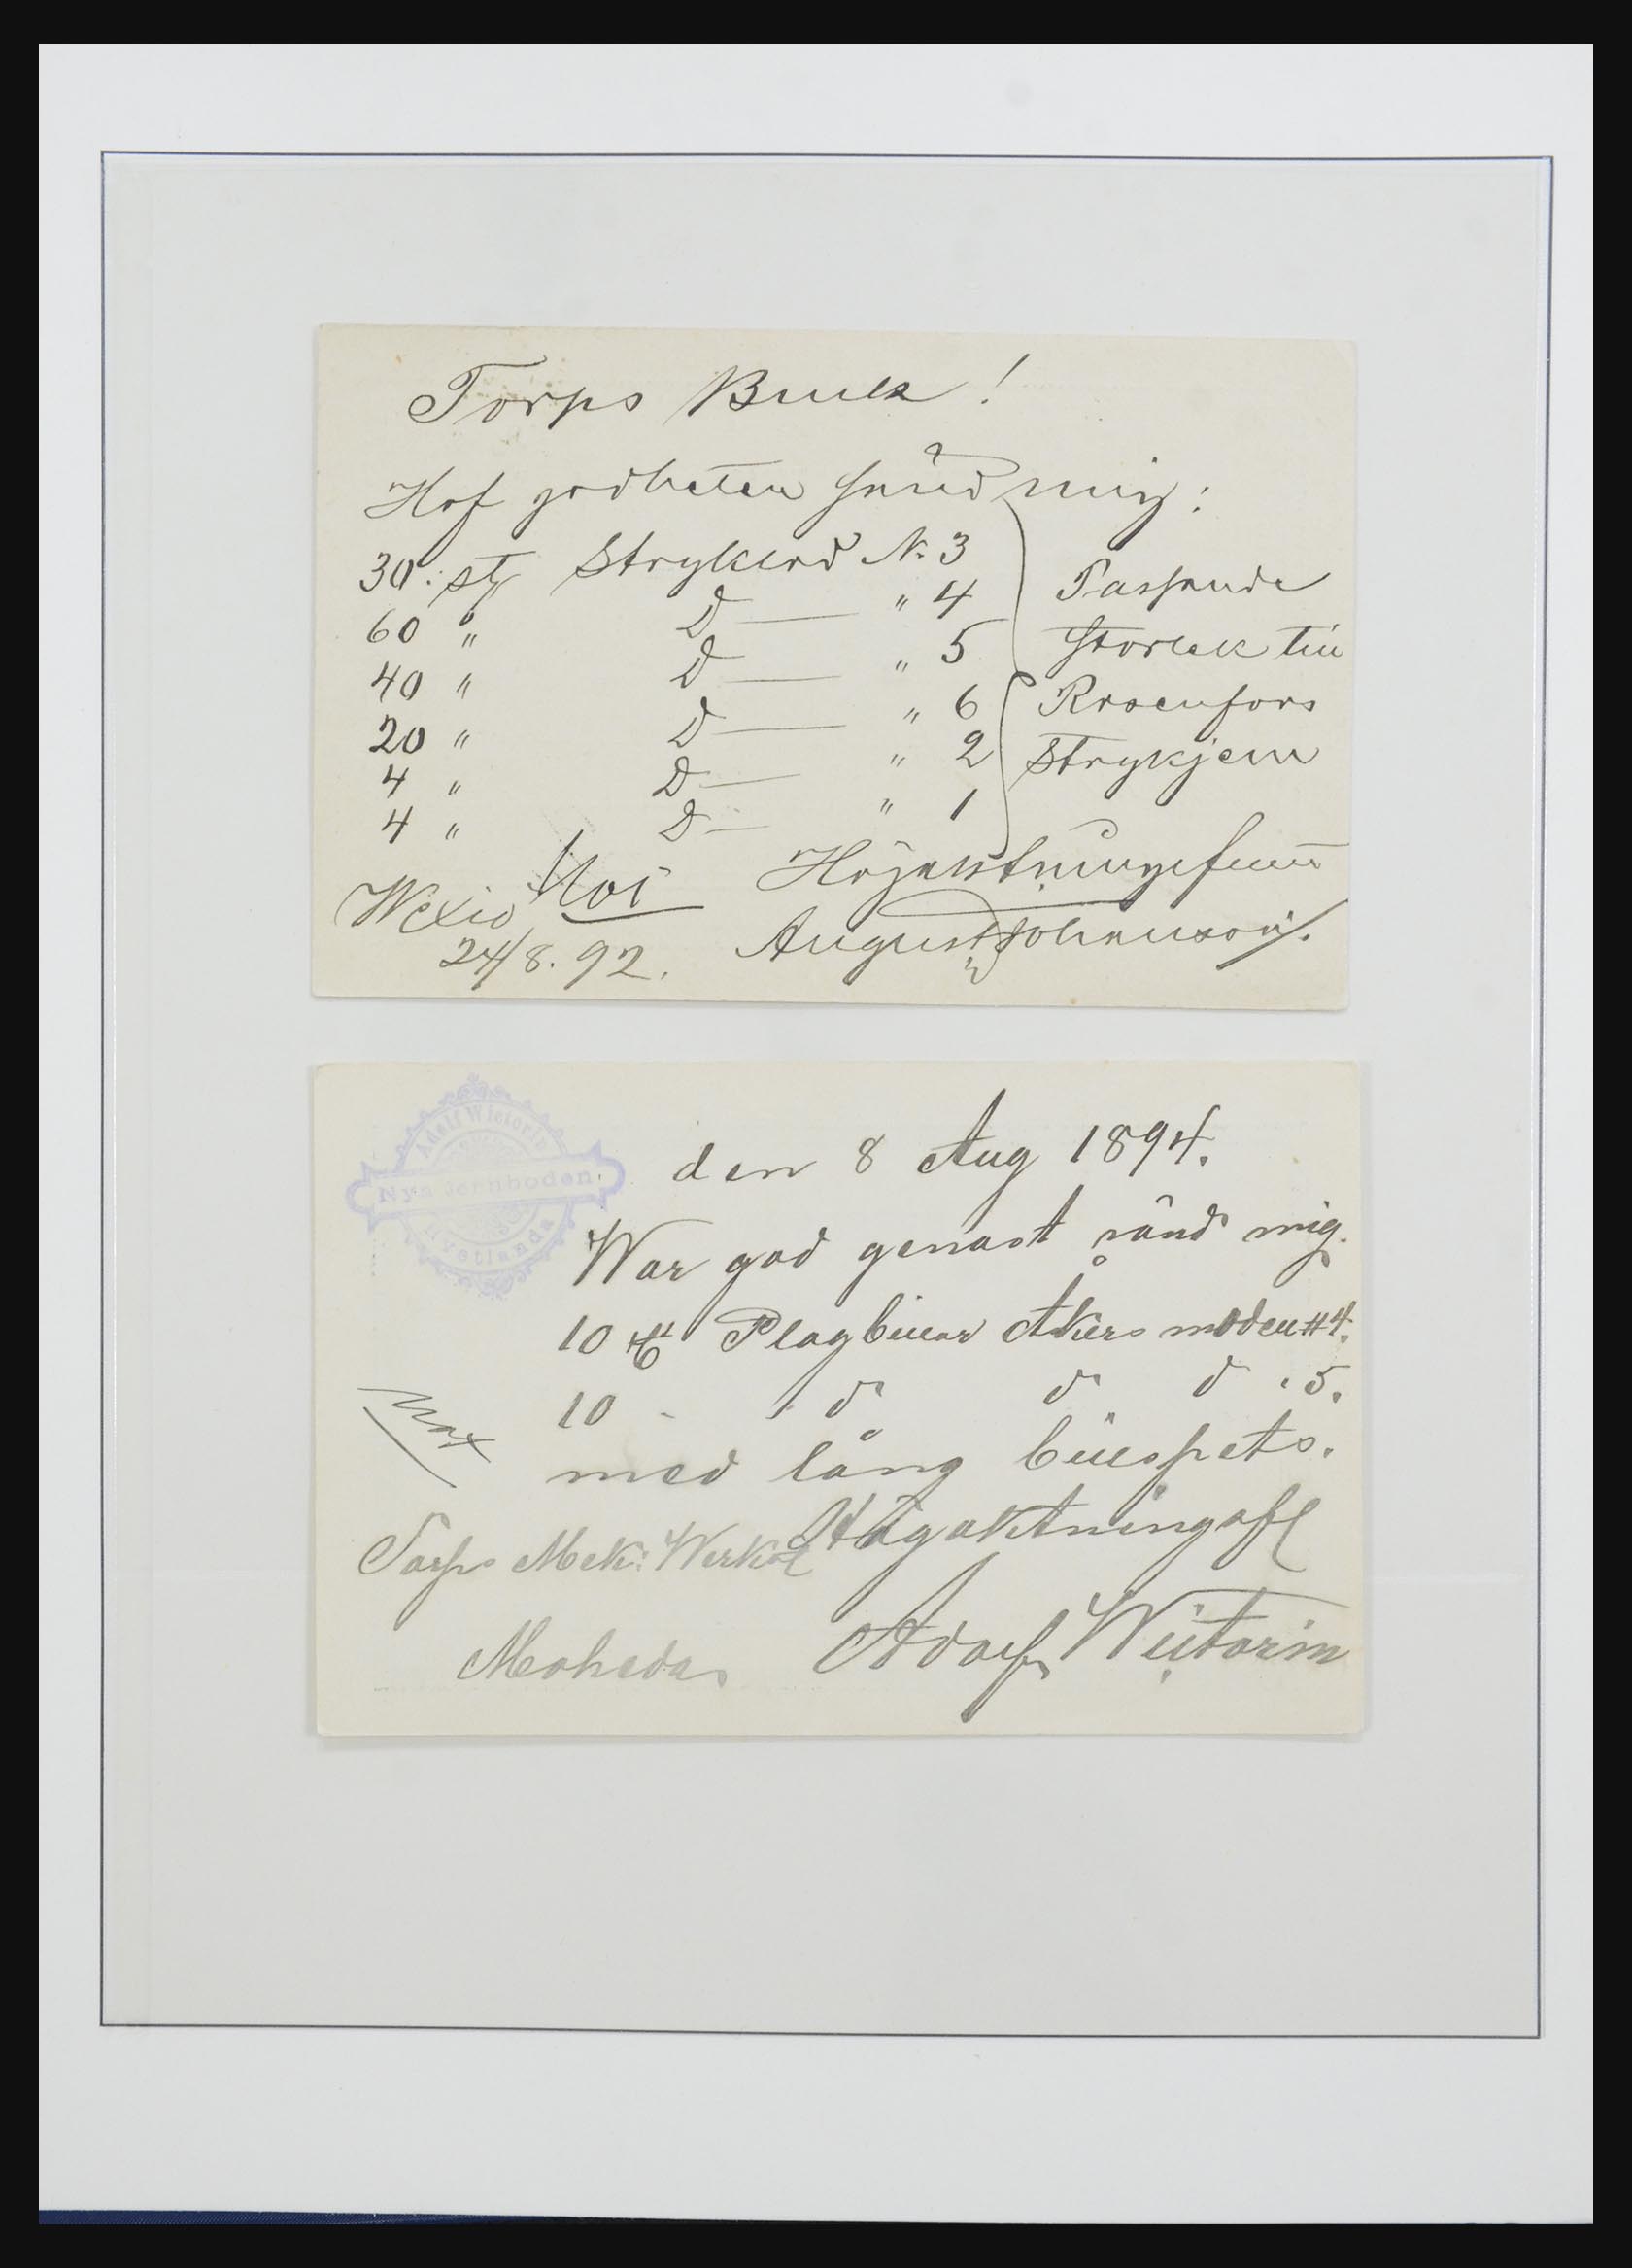 Torps Bruk!
Haf godheten sänd mig:
30. st Stryklod N. 3
60 " Do — " 4
40 " Do — " 5
20 " Do — " 6
4 " Do — " 2
4 " Do — " 1
Passande
storlek till
Rosenfors
Strykjern
Högaktningsfullt
Wexiö
24/8. 92.
August Johansson
Adolf Wictorin
Nya Jernboden
Hvetlanda
den 8 Aug 1894.
War god genast sänd mig.
10 st Plogbillar Åkers modell # 4.
10 - do do do " 5.
med lång billspets.
Högaktningsfl
Torps Mek: Werkst
Moheda
Adolf Wictorin